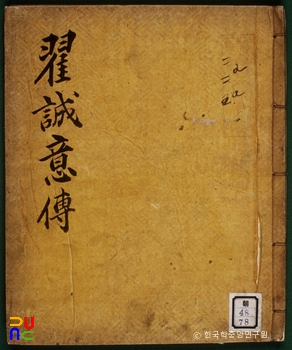 翟誠意傳
朝
48
78
© 한국학중앙연구원